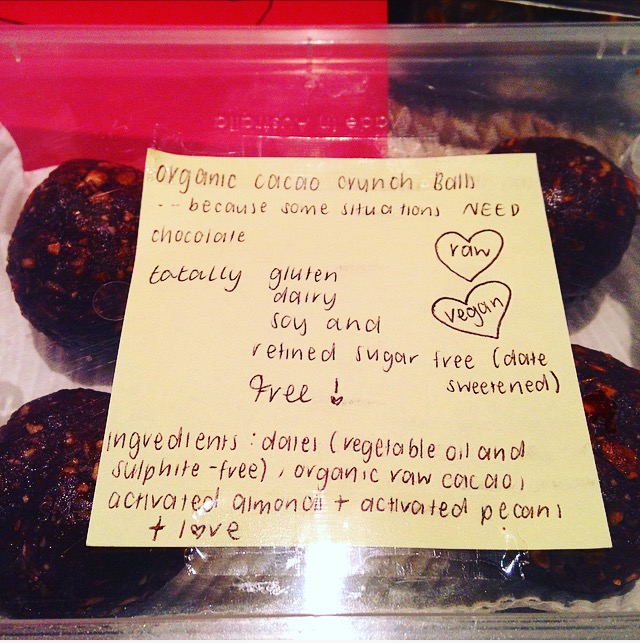 Made in Australia
organic cacao crunch Balls
-- because some situations NEED
chocolate
raw
totally gluten
dairy
vegan
soy and
refined sugar free (date
sweetened)
free !
ingredients : dates (vegetable oil and
sulphite-free), organic raw cacao,
activated almonds + activated pecans
+ love